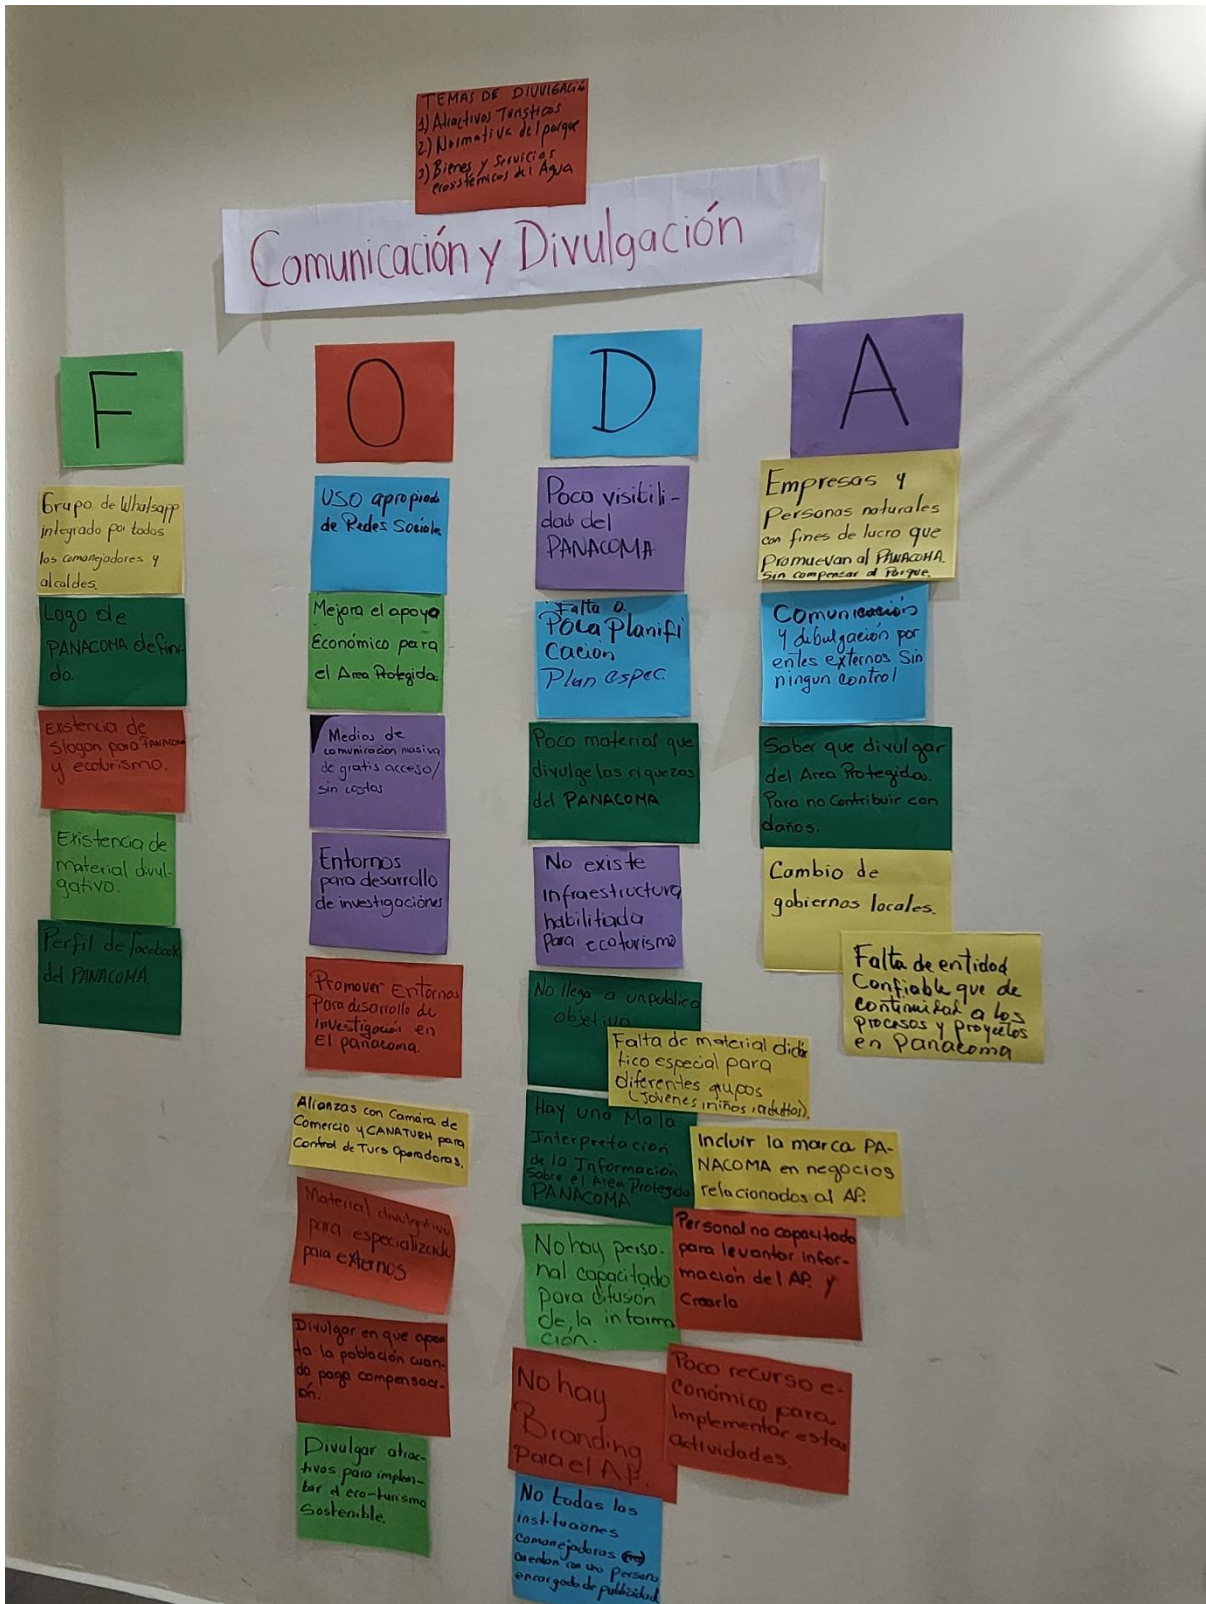 TEMAS DE DIVULGACIÓ
1) Atractivos Turísticos
2) Normativa del parque
3) Bienes y Servicios
ecosistémicos del Agua
Comunicación y Divulgación
F
Grupo de Whatsapp
integrado por todos
los comanejadores y
alcaldes.
Logo de
PANACOMA defini-
do.
Existencia de
Slogan para PANACOMA
y ecoturismo.
Existencia de
material divul-
gativo.
Perfil de facebook
del PANACOMA.
O
USO apropiado
de Redes Sociales
Mejora el apoyo
Económico para
el Area Protegida.
Medios de
comunicación masiva
de gratis acceso/
sin costos
Entornos
para desarrollo
de investigaciónes
Promover Entornos
Para desarrollo de
investigación en
El panacoma.
Alianzas con Camára de
Comercio y CANATURH para
Control de Turs Operadoras.
Material divulgativo
para especializado
para externos
Divulgar en que apor-
ta la población cuan-
do paga compensaci-
ón.
Divulgar atrac-
tivos para implen-
tar el eco-turismo
Sostenible.
D
Poco visibili-
dad del
PANACOMA
Falta o
POCA Planifi
Cacion
Plan espec.
Poco material que
divulge las riquezas
del PANACOMA
No existe
infraestructura
habilitada
para ecoturismo
No llega a un publico
objetivo
Falta de material didá
tico especial para
diferentes grupos
(Jóvenes, niños, adultos).
Hay una Mala
Interpretacion
de la Información
Sobre el Area Protegida
PANACOMA
Incluir la marca PA-
NACOMA en negocios
relacionados al AP.
No hay perso-
nal capacitado
para difusión
de, la informa
ción.
Personal no capacitado
para levantar infor-
mación del AP. y
Crearla
No hay
Branding
Para el A.P.
Poco recurso e-
conómico para
Implementar estas
actividades.
No todas las
instituciones
comanejadoras
cuentan con una persona
encargado de publicidad
A
Empresas y
Personas naturales
con fines de lucro que
Promuevan al PANACOMA.
Sin compensar al Parque.
Comunicación
y dibulgación por
entes externos Sin
ningun control
Saber que divulgar
del Area Protegida.
Para no Contribuir con
daños.
Cambio de
gobiernos locales.
Falta de entidad
Confiable que de
continuidad a los
procesos y proyectos
en Panacoma